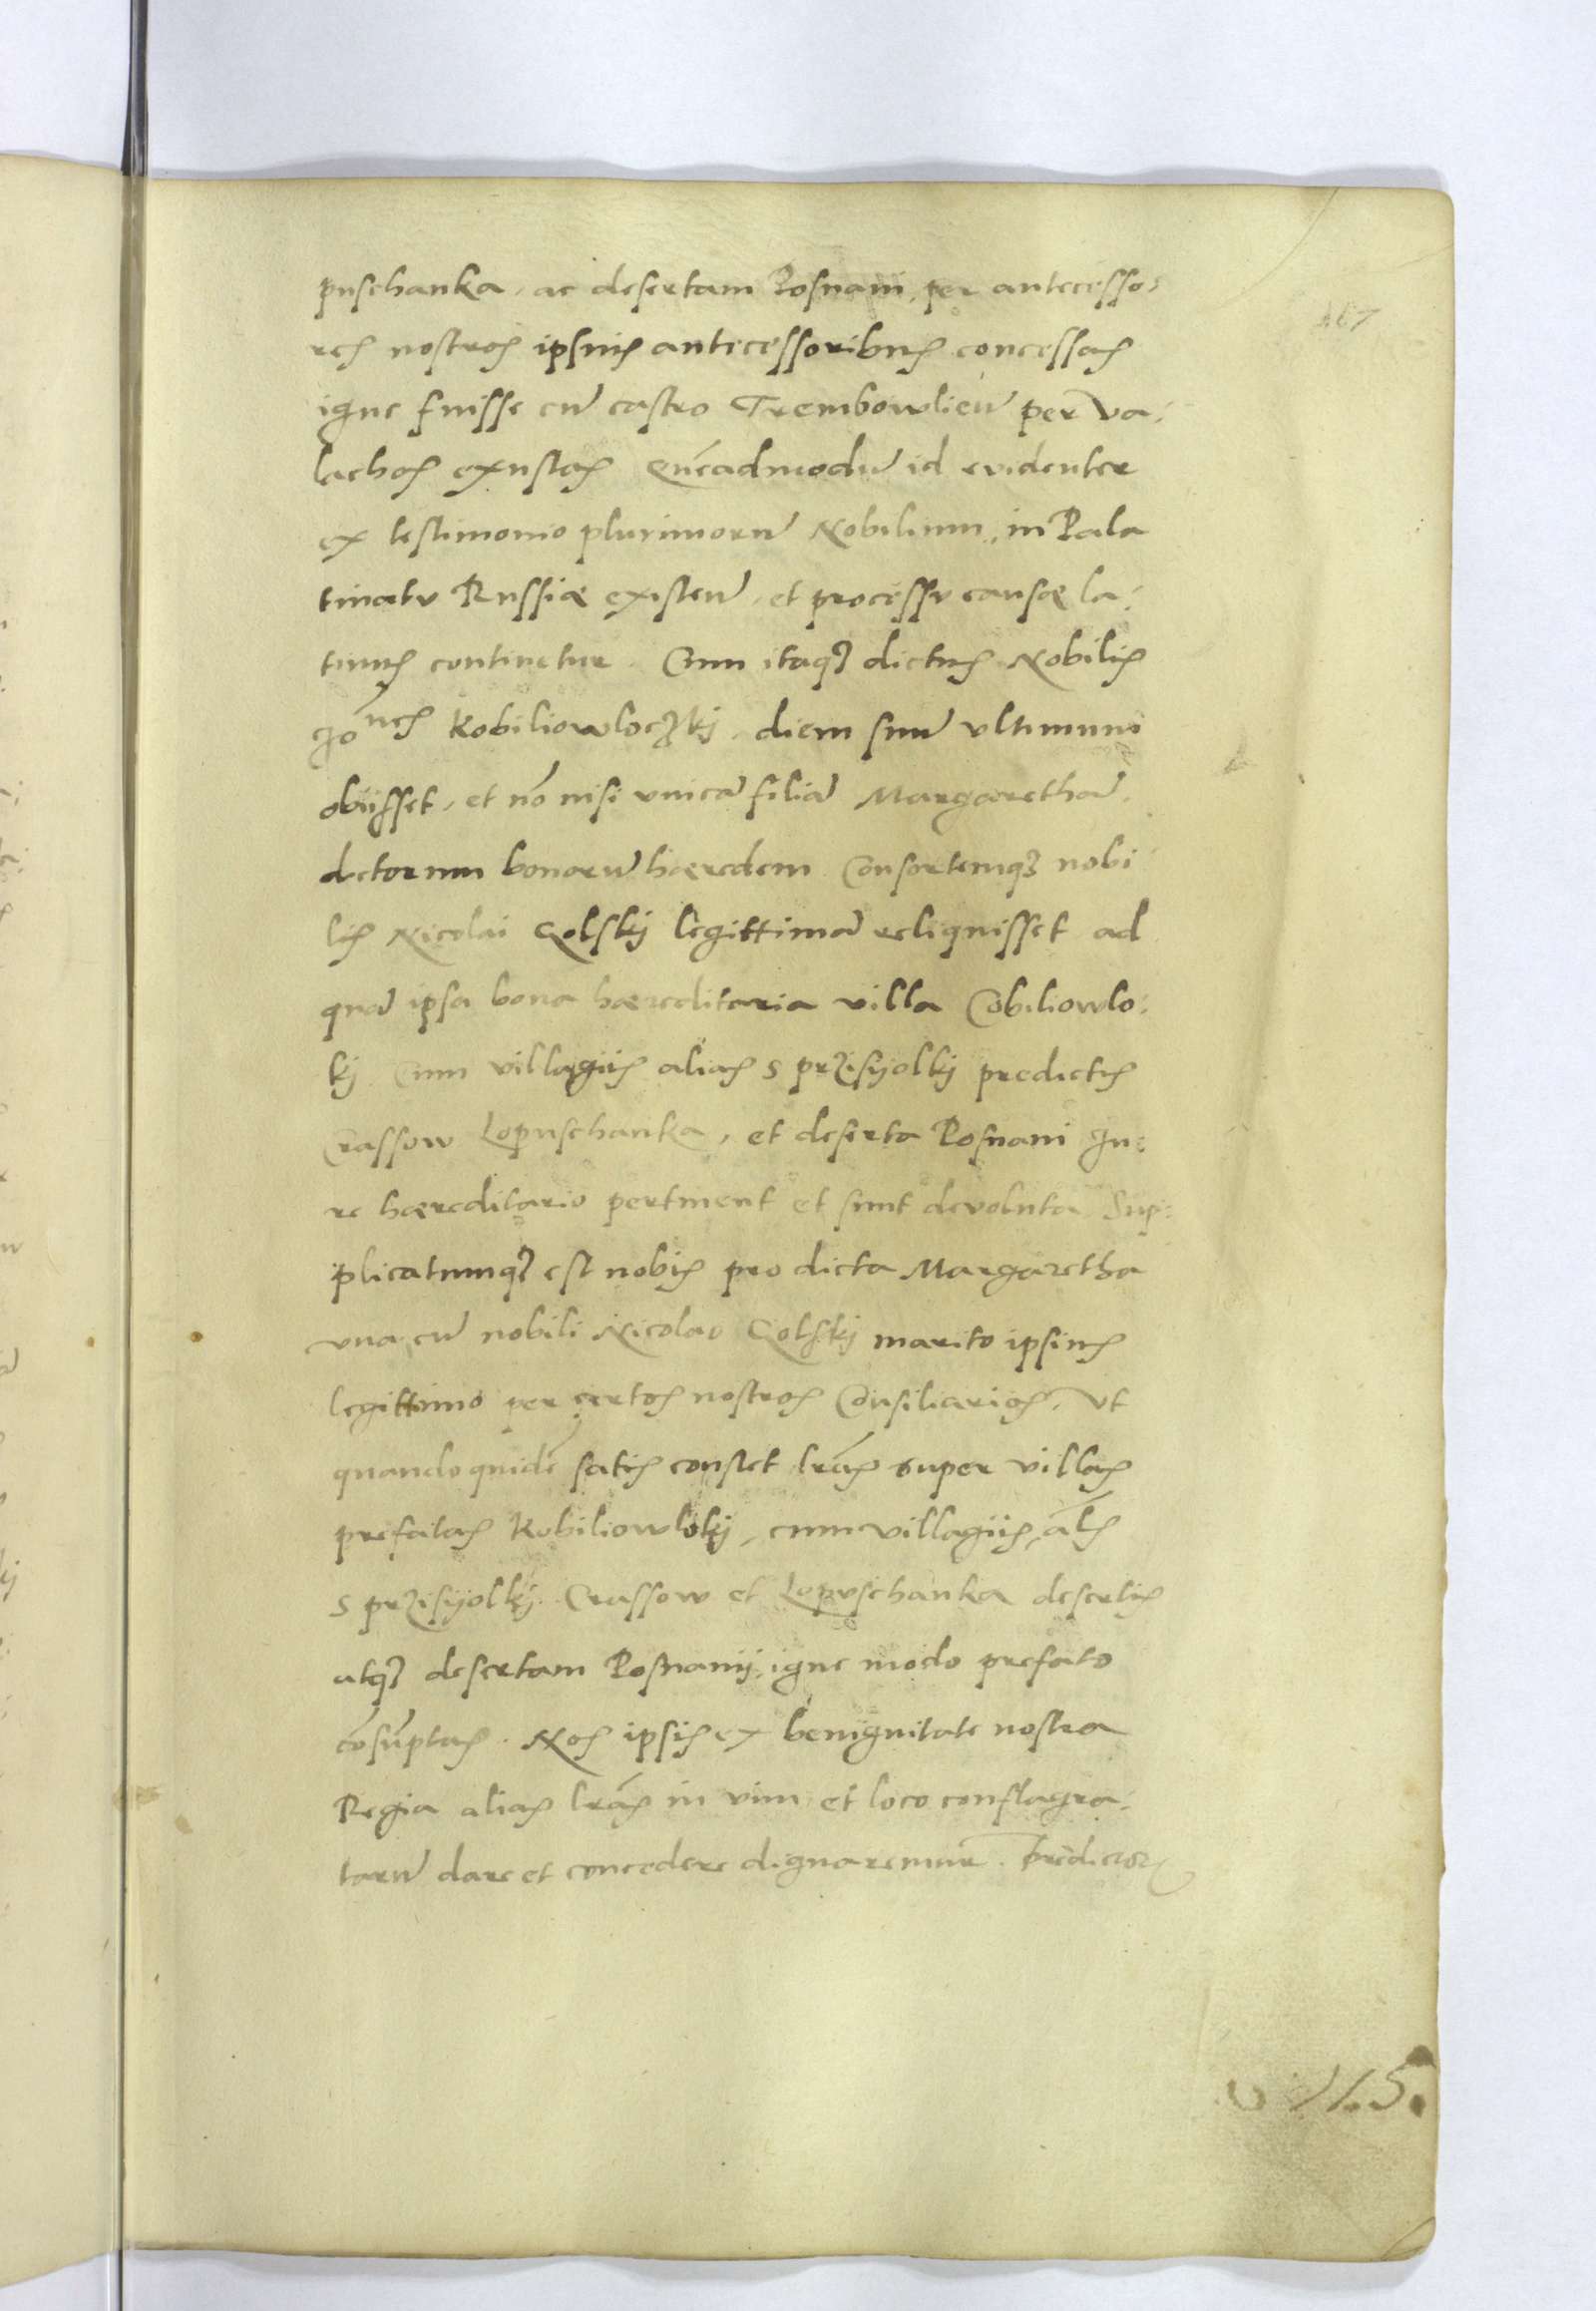 puschanka, ac desertam Posnani, per antecesso:
res nostros ipsius antecessoribus concessas
igne fuisse cũ castro Trembowlieñ per Va:
lachos exustas Quẽadmodũ id evidenter
ex testimonio plurimorũ Nobilium, in Pala
tinatu Russiæ existeñ, et processu causæ la:
tius continetur. Cum itaqȝ dictus Nobilis
Joñes Kobiliowloczkij diem suũ ultimum
obijsset, et nõ nisi unicã filiã Margarethã
dictorum bonorũ hæredem Consortemqȝ nobi
lis Nicolai Golskij legittimã reliquisset ad
quã ipsa bona hæreditaria villa Cobiliowlo:
kj Cum villagijs alias s przisijolkij predictis
Crassow Lopuschanka, et deserta Posnani Ju:
re hæreditario pertinent et sunt devoluta. Sup:
plicatumqȝ est nobis pro dicta Margaretha
una cũ nobili Nicolao Golskij marito ipsius
legittimo per certos nostros Consiliarios, Ut
quandoquidẽ satis constet lrãs super villas
prefatas Kobiliowlokj, cum villagijs, als
s przisijolkij Crassow et Lopuschanka desertis
atqȝ desertam Posnanij, igne modo prefato
cõsũptas. Nos ipsis ex benignitate nostra
Regia alias lrãs in vim et loco conflagra:
tarũ dare et concedere dignaremur. Predictor
167
115.